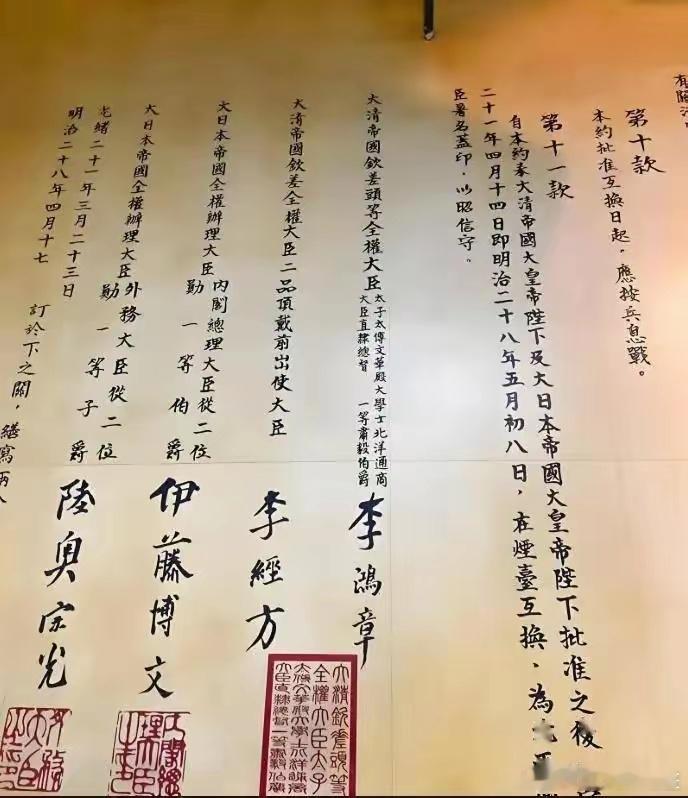 第十款
本約批准互換日起，應按兵息戰。
第十一款
自本約奉大清帝國大皇帝陛下及大日本帝國大皇帝陛下批准之後
二十一年四月十四日即明治二十八年五月初八日，在煙臺互換，為
臣署名蓋印，以昭信守。
大清帝國欽差頭等全權大臣
太子太傅文華殿大學士北洋通商
大臣直隸總督 一等肅毅伯爵
李鴻章
大清帝國欽差全權大臣二品頂戴前出使大臣
李經方
大日本帝國全權辦理大臣
內閣總理大臣從二位
勳一等伯爵
伊藤博文
大日本帝國全權辦理大臣
外務大臣從二位
勳一等子爵
陸奧宗光
光緒二十一年三月二十三日
明治二十八年四月十七
訂於下之關，繕寫兩
大清欽差頭等
全權大臣太子
太傅文華殿大學士北洋通商
大臣直隸總督一等肅毅伯爵